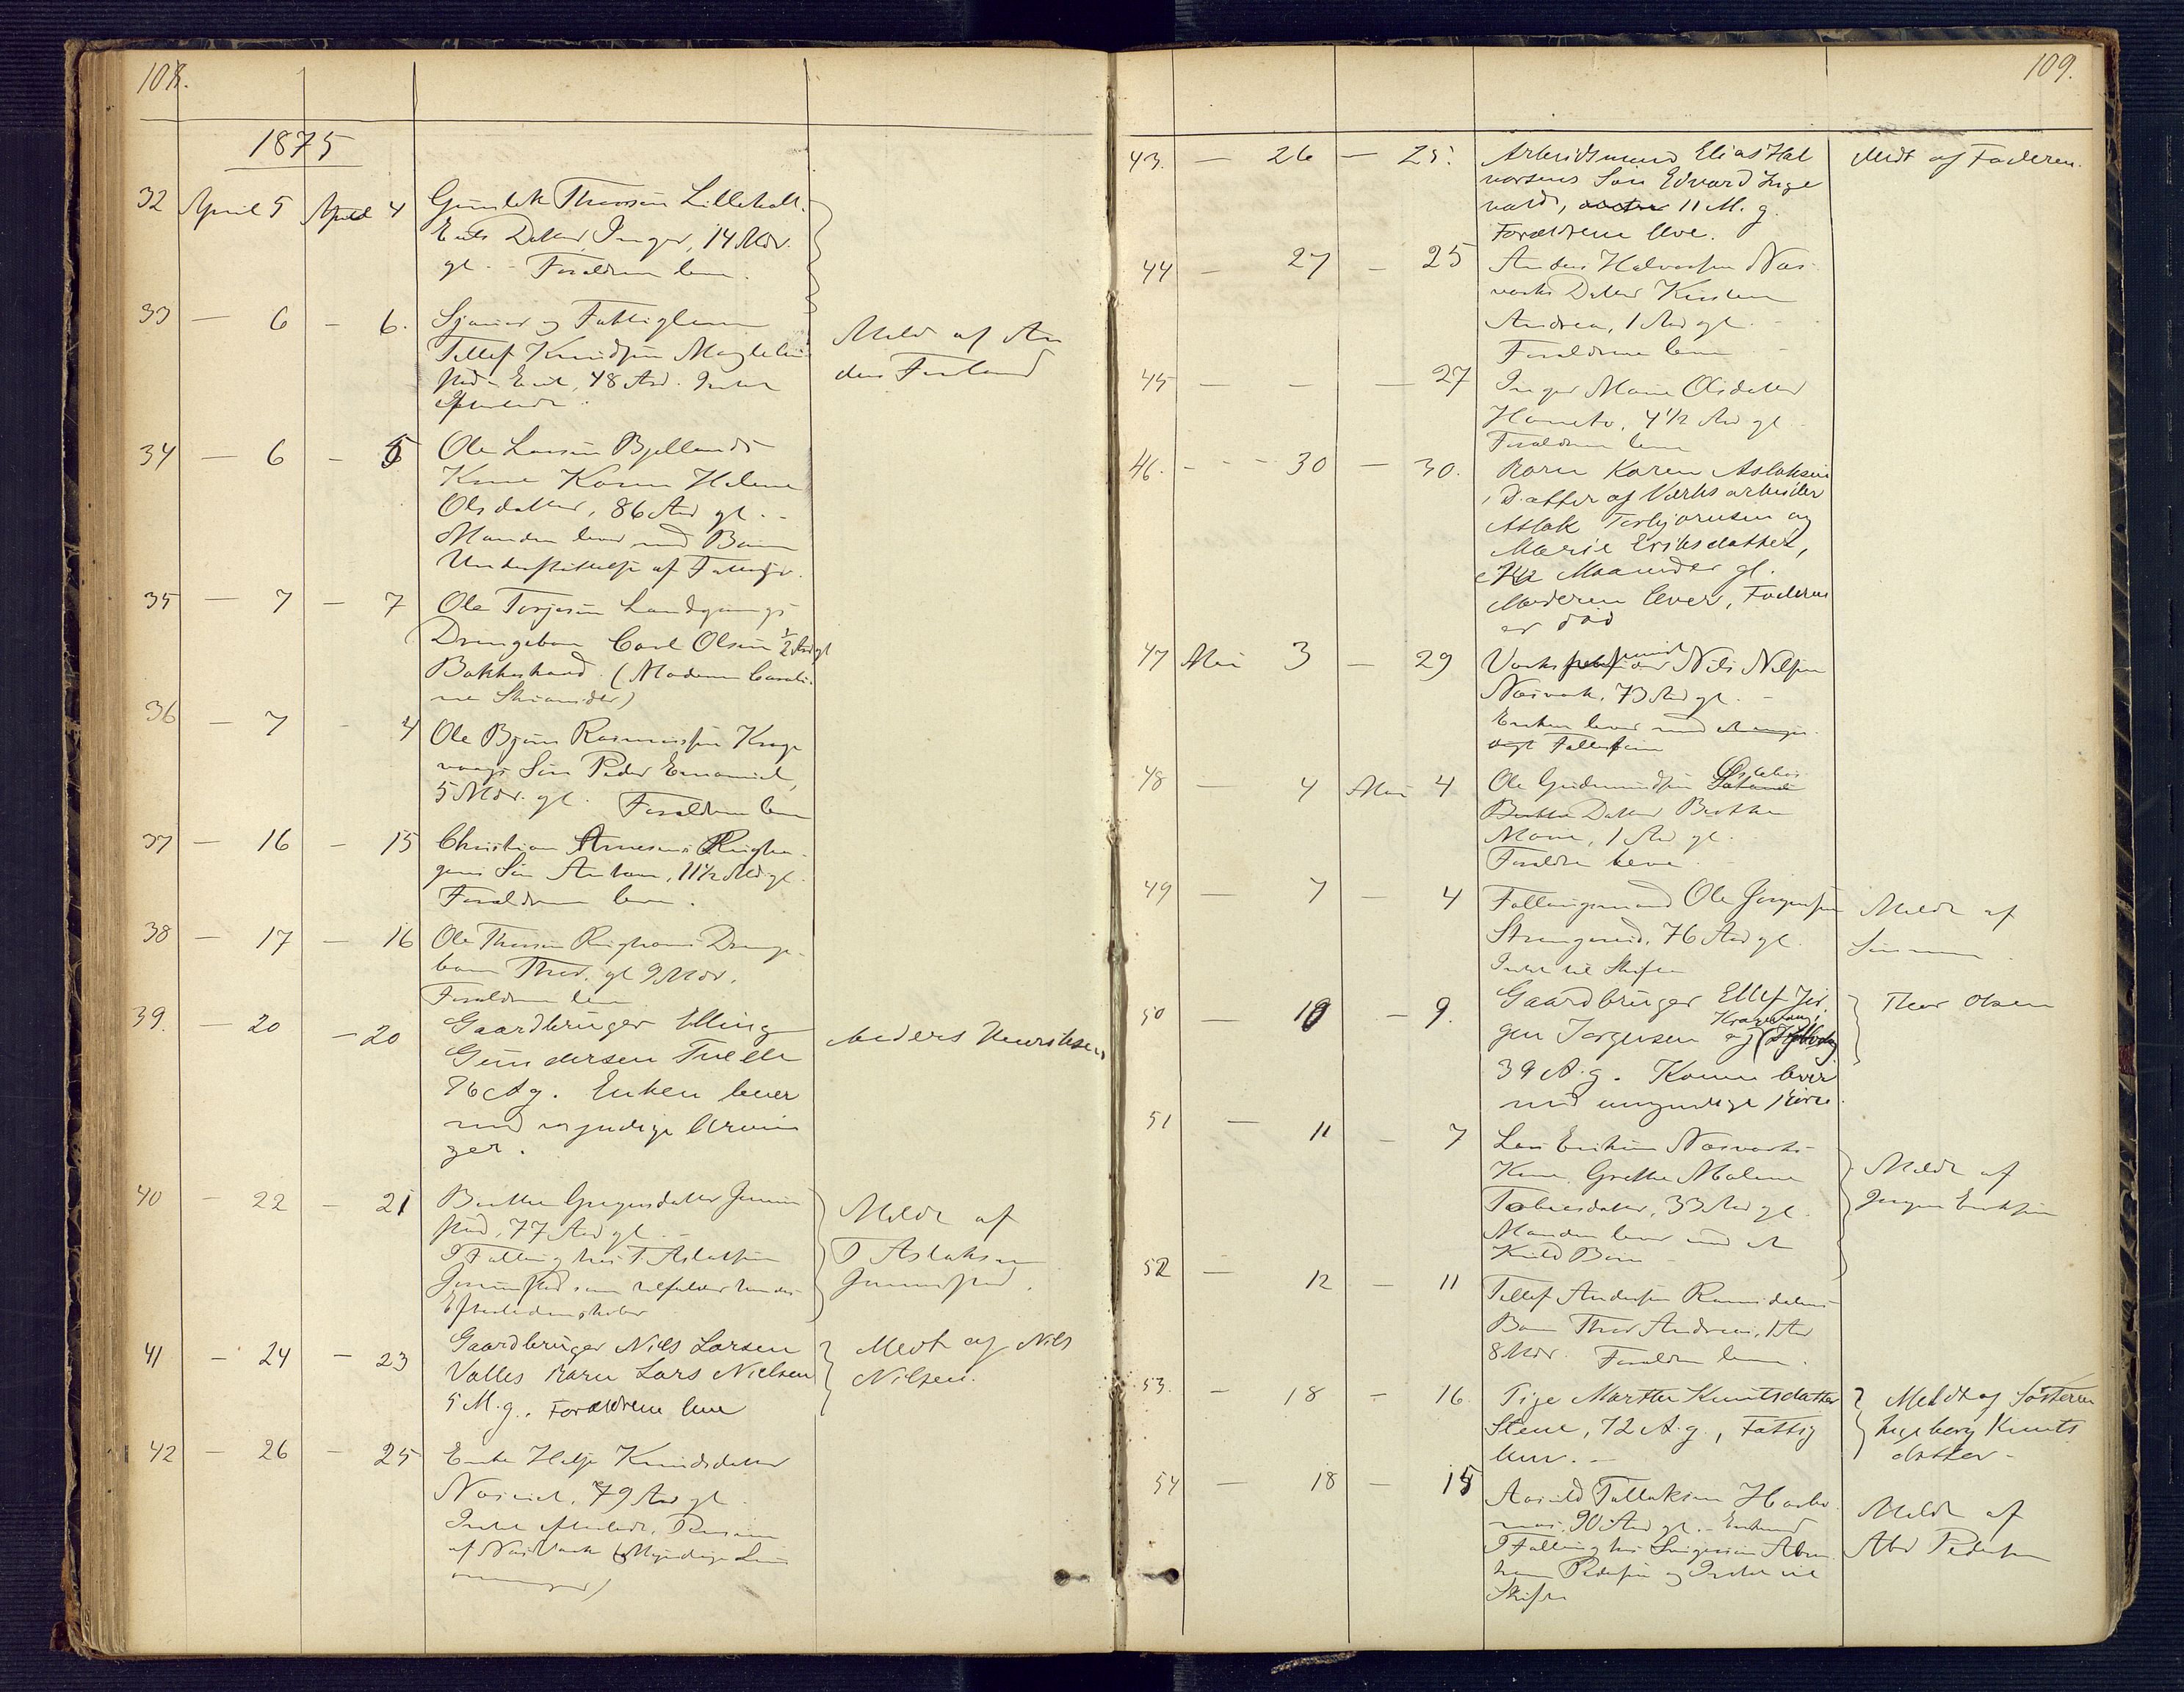 108.
1875
32 April 5 April 4 Gunlek Thorsen Lilleholt.
Eiets Datter Inger, 14 Mdr.
gl. - Forældrene leve.
33 — 6 — 6. og Fattiglem
Tellef Knudsen
48 Aar. Intet
efterladt.
Meldt af An
ders Furland
34 — 6 — 5 Ole Larsen Bjellands
Kone Karen Helene
Olsdatter, 86 Aar gl. -
Manden lever med Børn
Understøttelse af Fattigv.
35 — 7 — 7 Ole Torjesen Landgangs
Drengebarn Carl Olsen 1/2 Aar gl
Bakkeland. (Moderen Caroli-
ne)
36 — 7 — 4 Ole Bjørn Rasmussen Krage
vaags Søn Peder Emanuel,
5 Mdr. gl. Forældrene leve
37 — 16 — 15 Christian Arnesens Ringha-
gens Søn Anton, 11 1/2 Md gl.
Forældrene leve.
38 — 17 — 16 Ole Thorsen Drenge-
barn Thor, gl 9 Mdr.
Forældrene leve
39. — 20 — 20 Gaardbruger Elling
Gundersen Tvedte
76 A g. Enken lever
med myndige Arvin
ger.
Anders Henriksen
40 — 22 — 21 Berthe Gregersdatter
77 Aar gl. -
I Fattig hos T Aslaksen
som
Meldt af
T Aslaksen
41 — 24 — 23 Gaardbruger Niels Larsen
Valles Barn Lars Nielsen
5 M. g. Forældrene leve
Meldt af Nils
Nilsen.
42 — 26 — 25 Enke Helje Knudsdatter
79 Aar gl.
Intet efterladt.
af Næs Værk
109.
43. — 26 — 25. Arbeidsmand Elias Hal
vorsens Søn Edvard Inge
vald, 11 M. g.
Forældrene leve.
Meldt af Faderen.
44 — 27 — 25 Anders Halvorsen Næs
værks Datter Kirstine
Andrea, 1 Aar gl. -
Forældrene leve
45 — — — 27 Inger Marie Olsdatter
4 1/2 Aar gl.
Forældrene leve
46. - - - 30 — 30. Barn Karen Aslaksen
, Datter af Værksarbeider
Aslak Torbjørnsen og
Marie Eriksdatter,
Maaneder gl.
Moderen lever, Faderen
er død
47 Mai 3 — 29 Nils Nilsen
Næsværk, 73 Aar gl. -
Enken lever med
48 — 4 Mai 4 Ole Gudmundsen
Datter Berthe
Marie, 1 Aar gl.
Forældre leve.
49 — 7 — 4 Ole Jørgensen
Strengereid, 76 Aar gl.
Intet til Skifte
Meldt af
Sønnen
50 — 10 — 9. Gaardbruger Ellef Jør
gen Jørgensen
39 A. g. Konen lever
med umyndige Børn.
Thor Olsen
51 — 11 — 7 Lars Eriksen Næsværks
Kone Grethe Malene
Tobiasdatter, 33 Aar gl.
Manden lever med et
Kuld Børn
Meldt af
Jørgen Eriksen
52 — 12 — 11 Tellef Andersen
Barn Thor Andreas, 1 Aar
8 Mdr. Forældre leve.
53. — 18 — 16. Pige Marthe Knutsdatter
Stene, 72 A. g., Fattig
lem. -
Meldt af Søsteren
Ingeborg Knuts
datter -
54 — 18 — 15 Tallaksen
90 Aar gl. - Enkemand
I Fattig hos Svigersøn Abra
ham Pedersen og Intet til
Skifte
Meldt af
Abr Pedersen